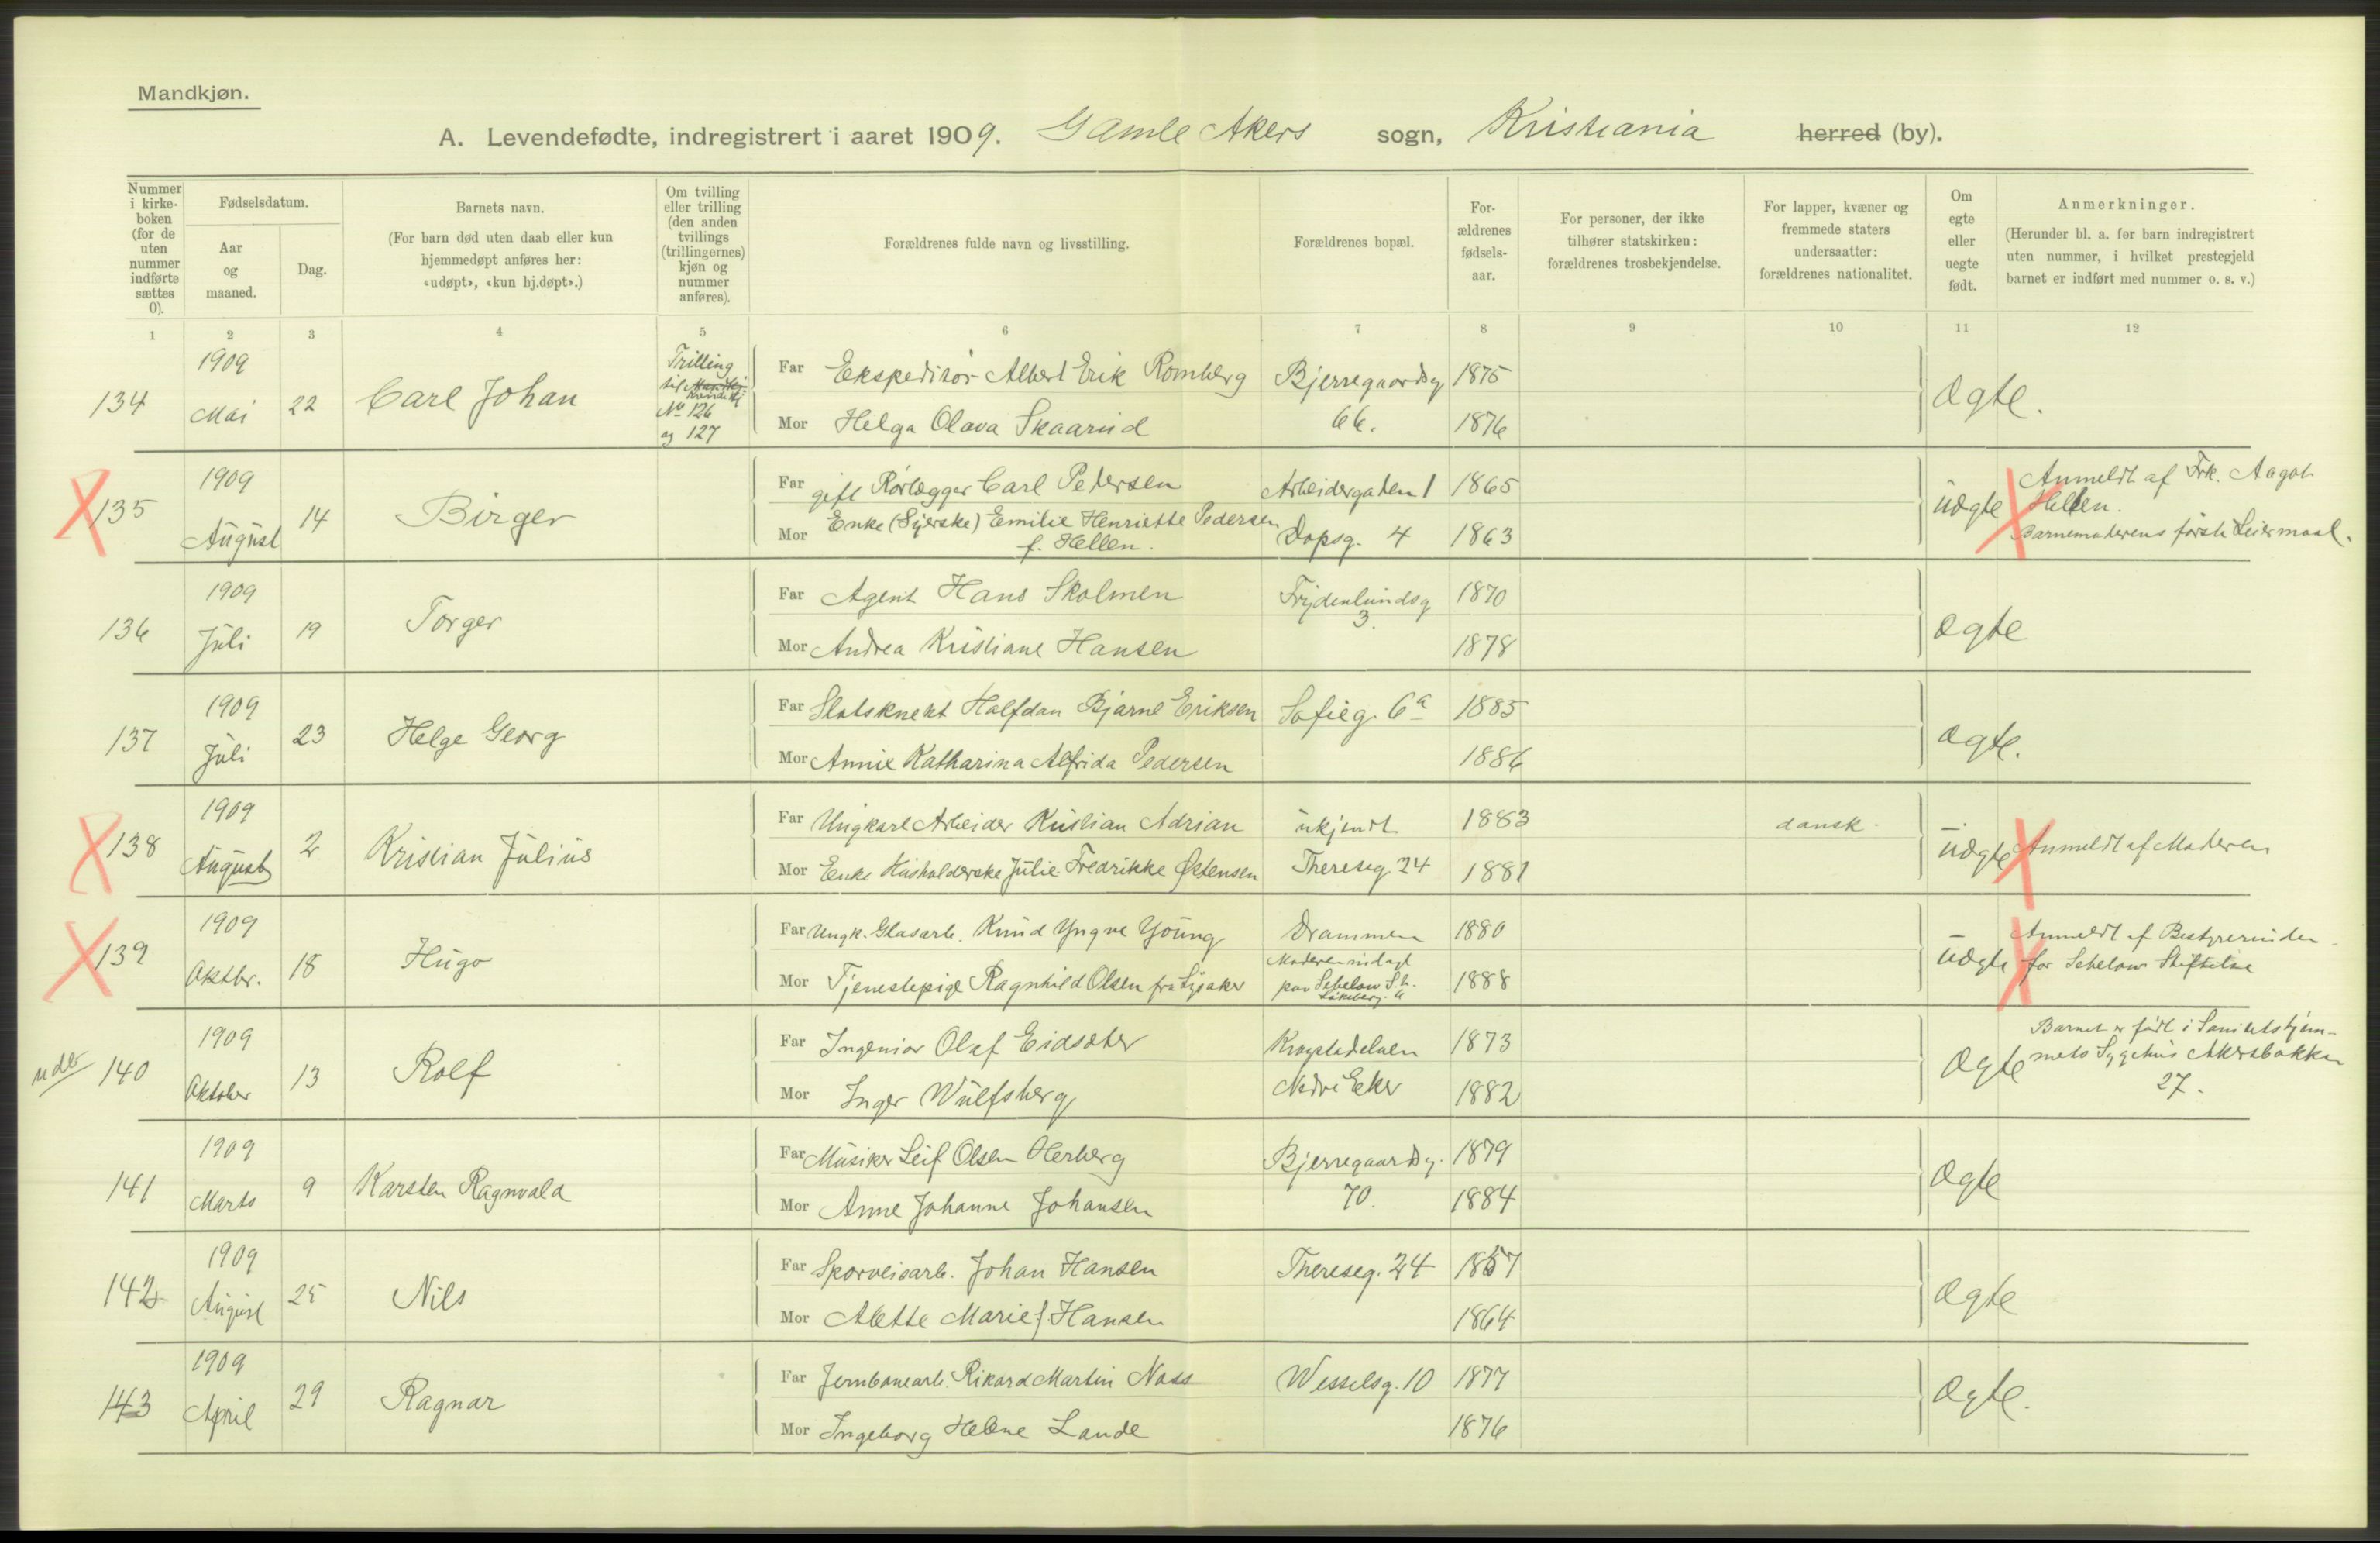 Mandkjøn.
A. Levendefødte, indregistrert i aaret 1909. Gamle Akers sogn, Kristiania herred (by).
Nummer i kirke-boken (for de uten nummer indførte sættes 0).
Fødselsdatum.
Aar og maaned.
Dag.
Barnets navn.
(For barn død uten daab eller kun hjemmedøpt anføres her: «udøpt», «kun hj.døpt».)
Om tvilling eller trilling (den anden tvillings (trillingernes) kjøn og nummer anføres).
Forældrenes fulde navn og livsstilling.
Forældrenes bopæl.
For-ældrenes fødsels-aar.
For personer, der ikke tilhører statskirken: forældrenes trosbekjendelse.
For lapper, kvæner og fremmede staters undersaatter: forældrenes nationalitet.
Om egte eller uegte født.
Anmerkninger.
(Herunder bl. a. for barn indregistrert uten nummer, i hvilket prestegjeld barnet er indført med nummer o. s. v.)
1 2 3 4 5 6 7 8 9 10 11 12
134 1909 Mai 22 Carl Johan Trilling til Kvindekj No 126 og 127
Far Ekspeditør Albert Erik Romberg Bjerregaardsg 1875
Mor Helga Olava Skaarud 66. 1876 Ægte.
135 1909 August 14 Birger
Far gift Rørlægger Carl Petersen Arbeidergaten 1 1865
Mor Enke (Syerske) Emilie Henriette Pedersen f. Hellen. Dopsg. 4 1863
uægte Anmeldt af Frk. Aagot Hellen.
Barnemoderens første Leiermaal.
136 1909 Juli 19 Torger
Far Agent Hans Skolmen Frydenlundsg 3. 1870
Mor Andrea Kristiane Hansen 1878 ægte
137 1909 Juli 23 Helge Georg
Far Slotsknekt Halfdan Bjarne Eriksen Sofieg. 6a 1885
Mor Annie Katharina Alfrida Pedersen 1886 ægte.
138 1909 August 2 Kristian Julius
Far Ungkarl Arbeider Kristian Adrian ukjendt 1883 dansk.
Mor Enke Husholderske Julie Fredrikke Østensen Thereseg 24 1881
uægte Anmeldt af Moderen
139 1909 Oktbr. 18 Hugo
Far Ungk. Glasarb. Knud Yngve Young Drammen 1880
Mor Tjenestepige Ragnhild Olsen fra Lysaker Moderen indlagt paa Schelow St. 1888
uægte Anmeldt af Bestyrerinden for Schelow Stiftelse
140 1909 Oktober 13 Rolf
Far Ingeniør Olaf Eidsæter Krogstadelven 1873
Mor Inger Wulfsberg Nedre Eker 1882
Ægte Barnet er født i Sanitetshjem-
mets Sygehus Akersbakken
27.
141 1909 Marts 9 Karsten Ragnvald
Far Musiker Leif Olsen Herberg Bjerregaardsg. 1879
Mor Anne Johanne Johansen 70. 1884 Ægte
142 1909 August 25 Nils
Far Sporveisarb. Johan Hansen Thereseg. 24 1857
Mor Alette Marie f. Hansen 1864 Ægte
143 1909 April 29 Ragnar
Far Jernbanearb. Rikard Martin Nass Wesselsg. 10 1877
Mor Ingeborg Helene Lande 1876 Ægte.